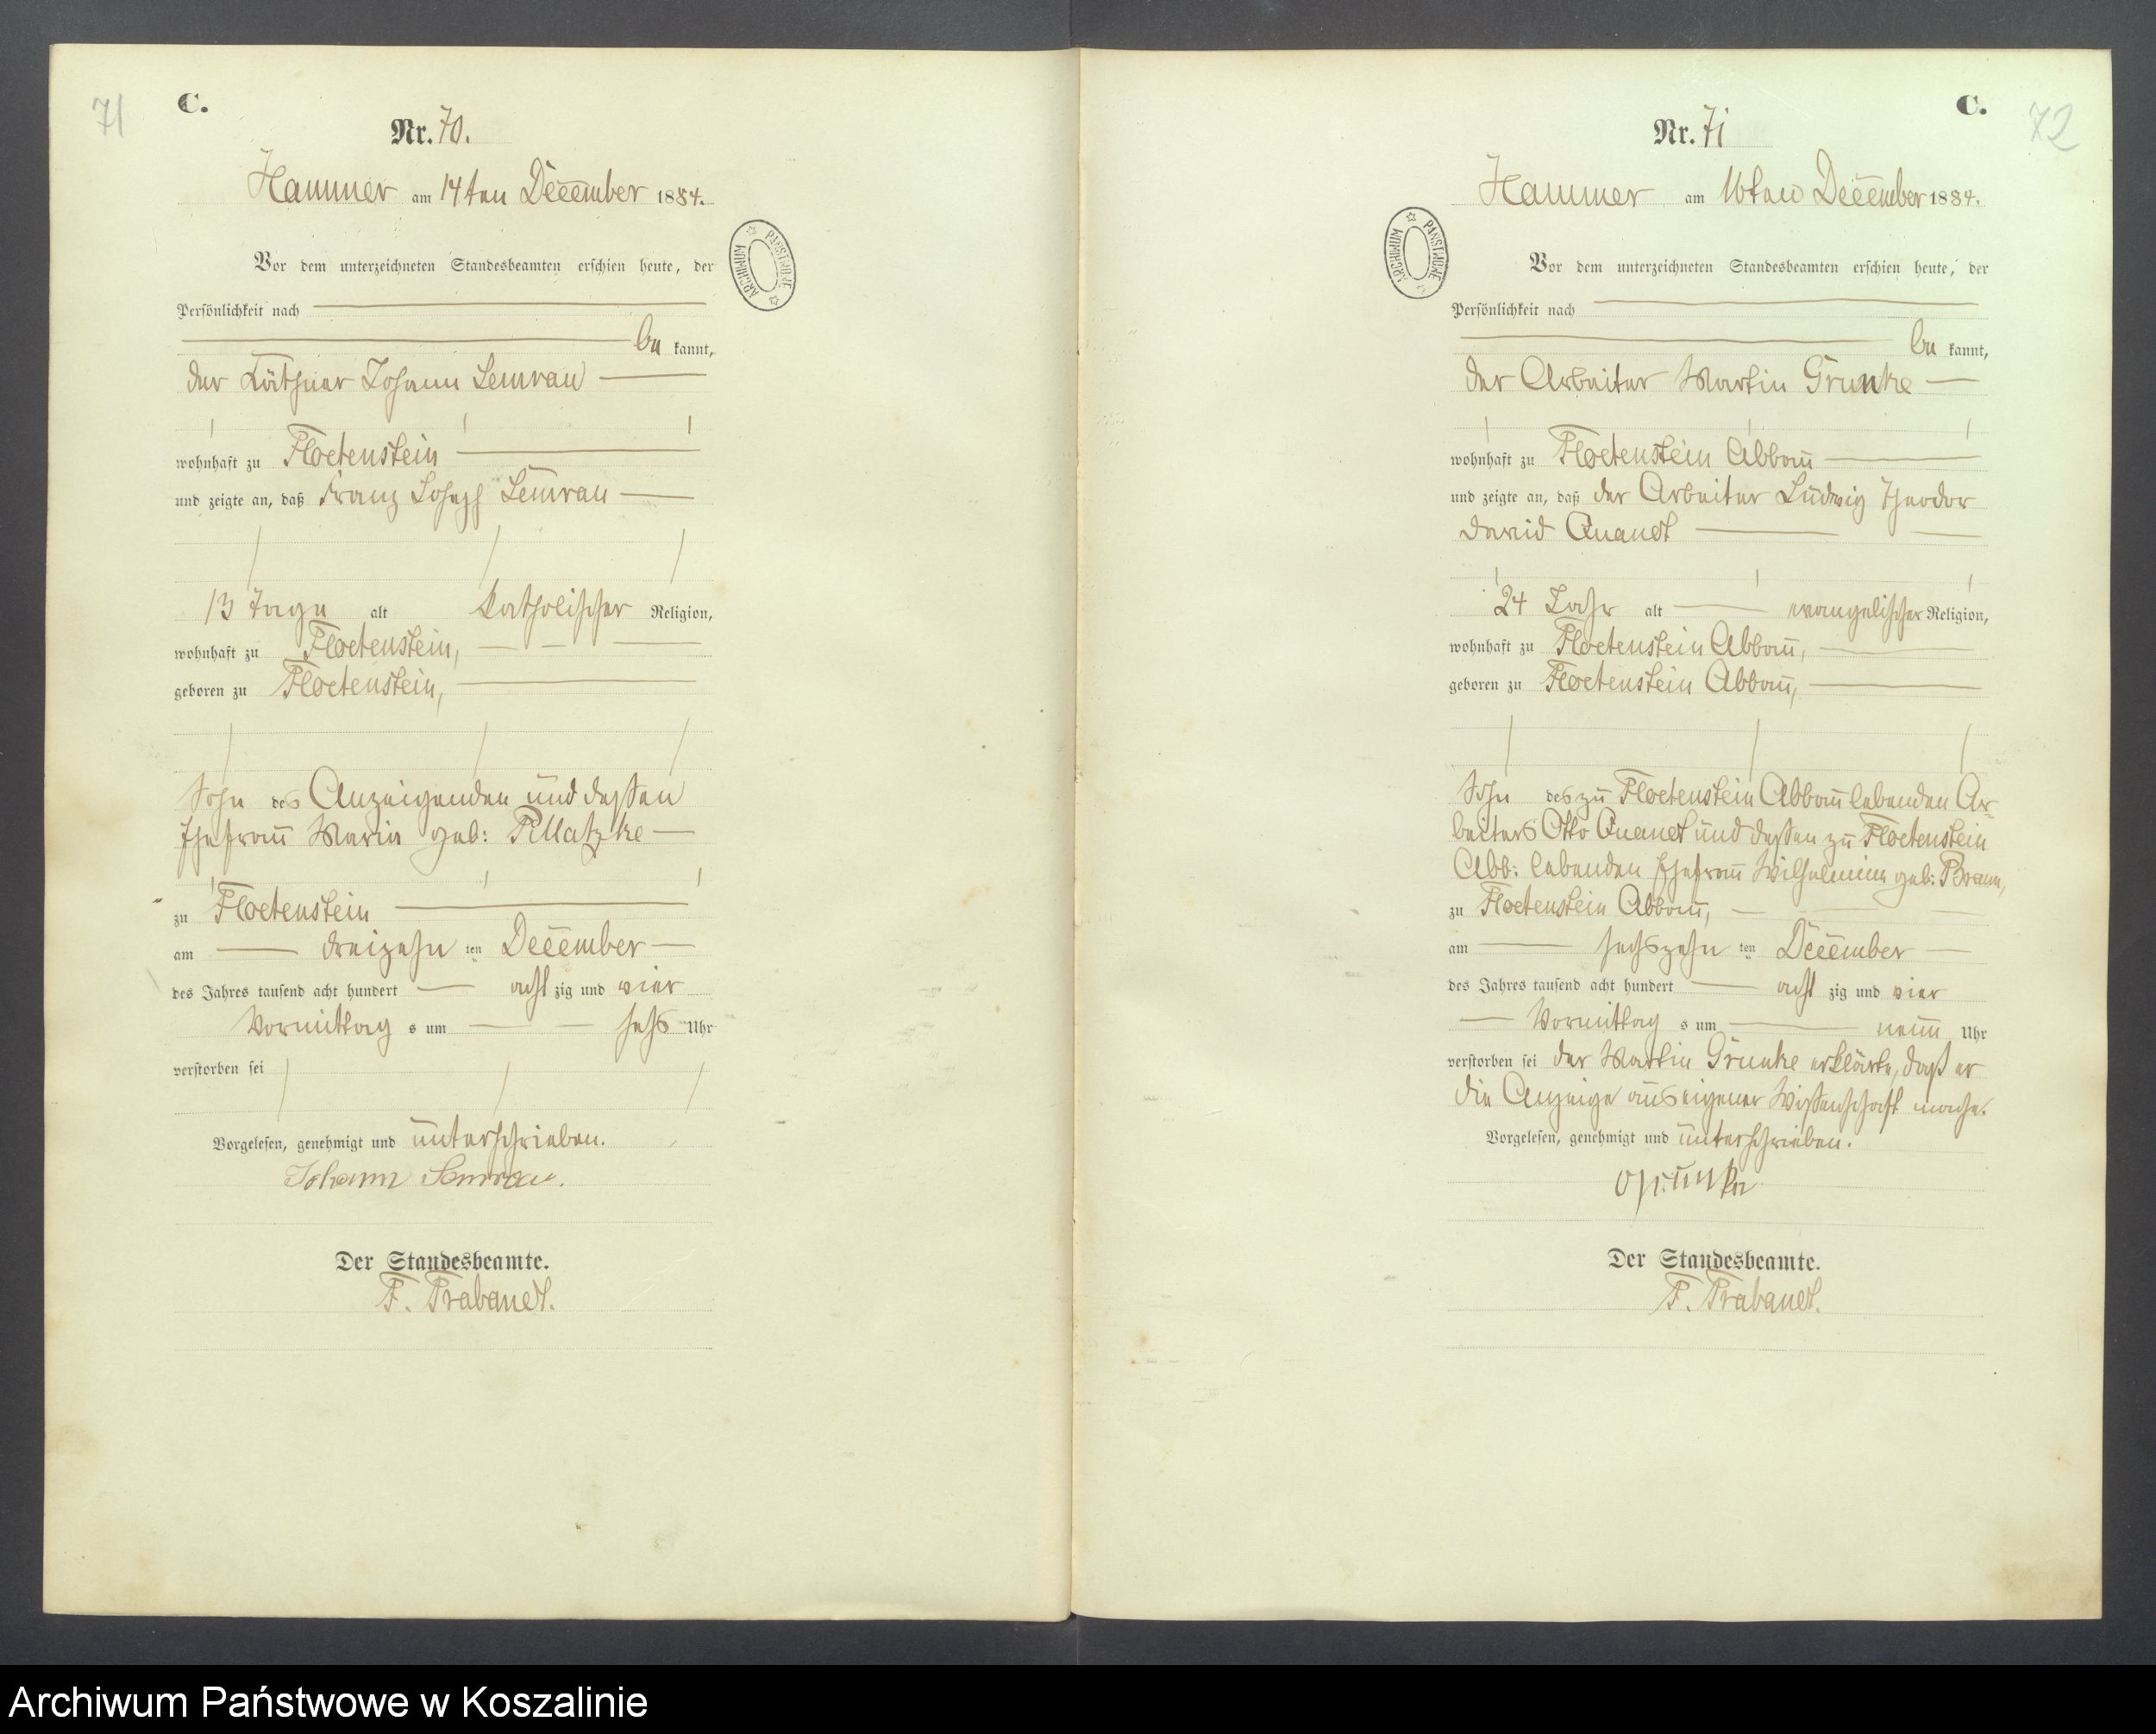 71
C.
Nr. 70.
Hammer am 14ten December 1884.
Vor dem unterzeichneten Standesbeamten erschien heute, der
Persönlichkeit nach
be kannt,
der Käthner Johann Semrau
wohnhaft zu Floetenstein
und zeigte an, daß Franz Joseph Semrau
13 Tage alt katholischer Religion,
wohnhaft zu Floetenstein,
geboren zu Floetenstein,
Sohn des Anzeigenden und dessen
Ehefrau Maria geb: Pillatzke
zu Floetenstein
am dreizehn ten December
des Jahres tausend acht hundert acht zig und vier
Vormittag s um sechs Uhr
verstorben sei
Vorgelesen, genehmigt und unterschrieben.
Johann Semrau.
Der Standesbeamte.
F. Prabandt.
ARCHIWUM PAŃSTWOWE
C.
72
Nr. 71
Hammer am 16ten December 1884.
Vor dem unterzeichneten Standesbeamten erschien heute, der
Persönlichkeit nach
be kannt,
der Arbeiter Martin Grunke
wohnhaft zu Floetenstein Abbau
und zeigte an, daß der Arbeiter Ludwig Theodor
David Quandt
24 Jahr alt evangelischer Religion,
wohnhaft zu Floetenstein Abbau,
geboren zu Floetenstein Abbau,
Sohn des zu Floetenstein Abbau lebenden Ar-
beiters Otto Quandt und dessen zu Floetenstein
Abb: lebenden Ehefrau Wilhelmine geb:
zu Floetenstein Abbau,
am sechszehn ten December
des Jahres tausend acht hundert acht zig und vier
Vormittag s um neun Uhr
verstorben sei der Martin Grunke erklärte, daß er
die Anzeige aus eigener Wissenschaft mache.
Vorgelesen, genehmigt und unterschrieben.
Grunke
Der Standesbeamte.
F. Prabandt.
ARCHIWUM PAŃSTWOWE
Archiwum Państwowe w Koszalinie